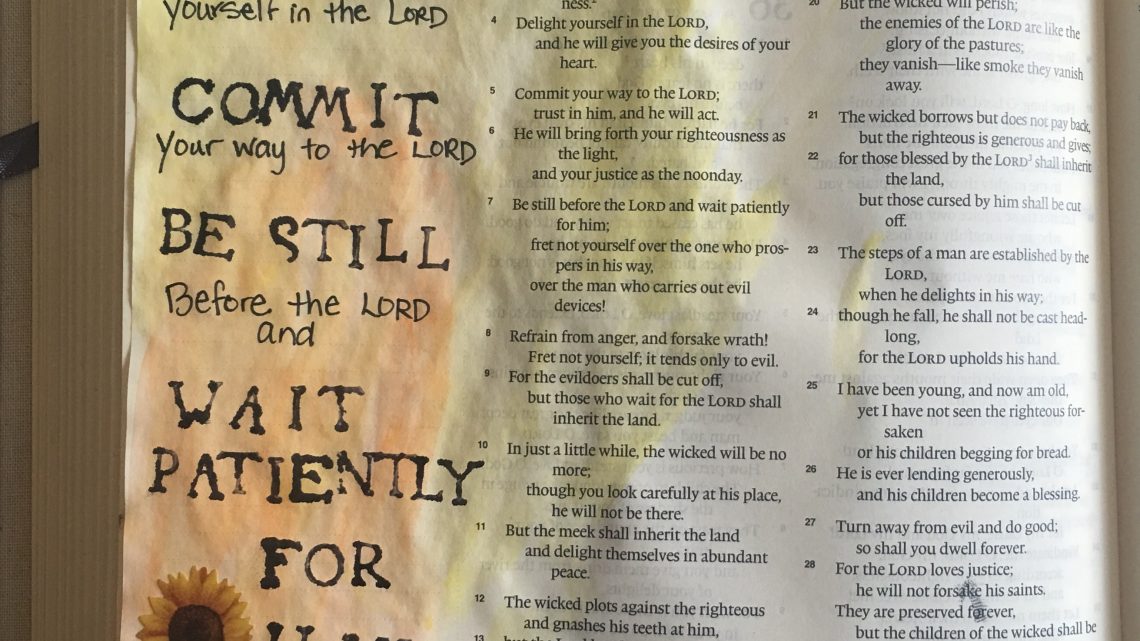 yourself in the LORD
COMMIT
your way to the LORD
BE STILL
Before the LORD
and
WAIT
PATIENTLY
FOR
ness.
4 Delight yourself in the LORD,
and he will give you the desires of your
heart.
5 Commit your way to the LORD;
trust in him, and he will act.
6 He will bring forth your righteousness as
the light,
and your justice as the noonday.
7 Be still before the LORD and wait patiently
for him;
fret not yourself over the one who pros-
pers in his way,
over the man who carries out evil
devices!
8 Refrain from anger, and forsake wrath!
Fret not yourself; it tends only to evil.
9 For the evildoers shall be cut off,
but those who wait for the LORD shall
inherit the land.
10 In just a little while, the wicked will be no
more;
though you look carefully at his place,
he will not be there.
11 But the meek shall inherit the land
and delight themselves in abundant
peace.
12 The wicked plots against the righteous
and gnashes his teeth at him,
13
20 But the wicked will perish;
the enemies of the LORD are like the
glory of the pastures;
they vanish—like smoke they vanish
away.
21 The wicked borrows but does not pay back,
but the righteous is generous and gives;
22 for those blessed by the LORD shall inherit
the land,
but those cursed by him shall be cut
off.
23 The steps of a man are established by the
LORD,
when he delights in his way;
24 though he fall, he shall not be cast head-
long,
for the LORD upholds his hand.
25 I have been young, and now am old,
yet I have not seen the righteous for-
saken
or his children begging for bread.
26 He is ever lending generously,
and his children become a blessing.
27 Turn away from evil and do good;
so shall you dwell forever.
28 For the LORD loves justice;
he will not forsake his saints.
They are preserved forever,
but the children of the wicked shall be